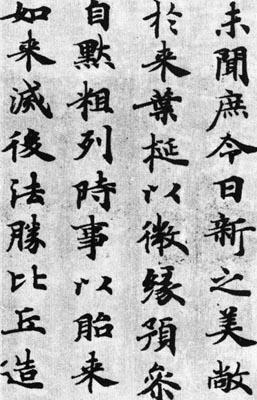 未聞庶今日新之美敞
於来葉梃以微緣預參
自默粗列時事以貽来
如来滅後法勝比丘造